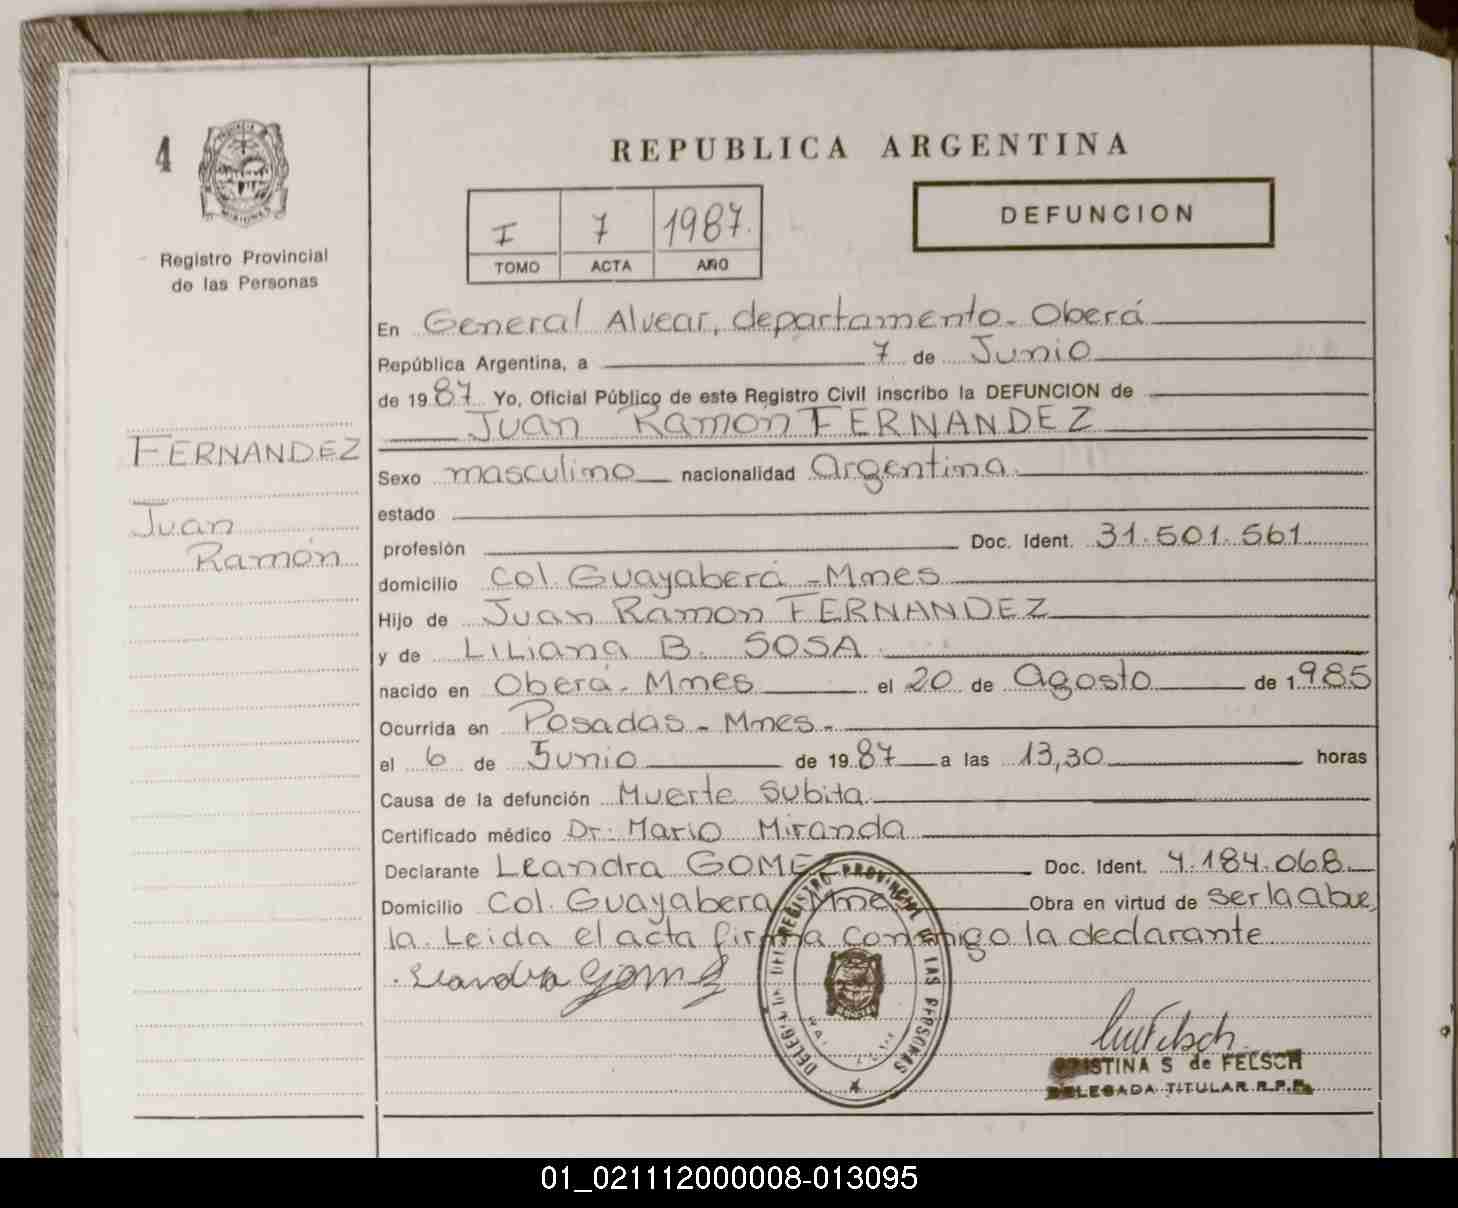 4
Registro Provincial
de las Personas
FERNANDEZ
Juan
Ramón
REPUBLICA ARGENTINA
I 7 1987.
TOMO ACTA AÑO
DEFUNCION
En General Alvear, departamento - Oberá
República Argentina, a 7 de Junio
de 1987 Yo, Oficial Público de este Registro Civil inscribo la DEFUNCION de
Juan Ramón FERNANDEZ
Sexo masculino nacionalidad Argentina
estado
profesión Doc. Ident. 31.501.561
domicilio Col. Guayaberá - Mnes
Hijo de Juan Ramon FERNANDEZ
y de LILiana B. SOSA
nacido en Oberá - Mnes el 20 de Agosto de 1985
Ocurrida en Posadas - Mnes -
el 6 de Junio de 1987 a las 13,30 horas
Causa de la defunción Muerte Subita
Certificado médico Dr: Mario Miranda
Declarante Leandra GOME Doc. Ident. 4.184.068
Domicilio Col. Guayabera Mne Obra en virtud de Ser la abue
la. Leida el acta firma conmigo la declarante
Leandra Gomez
REGISTRO PROVINCIAL DE LAS PERSONAS
CRISTINA S de FELSCH
DELEGADA TITULAR R.P.P.
01_021112000008-013095